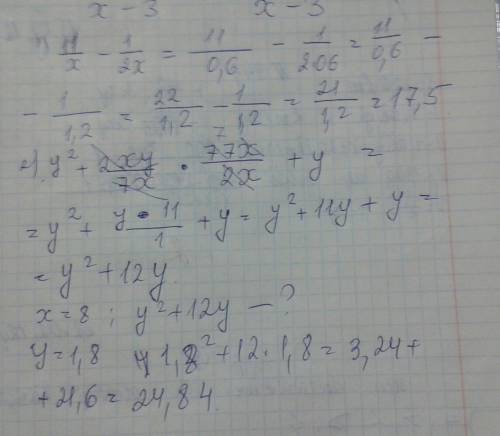 x − 3    x − 3
11/x − 1/2x = 11/0,6 − 1/2·0,6 = 11/0,6 −
− 1/1,2 = 22/1,2 − 1/1,2 = 21/1,2 = 17,5
y² + 2xy/7x · 77x/2x + y =
= y² + y·11/1 + y = y² + 11y + y =
= y² + 12y
x = 8 ; y² + 12y − ?
y = 1,8 1,8² + 12·1,8 = 3,24 +
+ 21,6 = 24,84